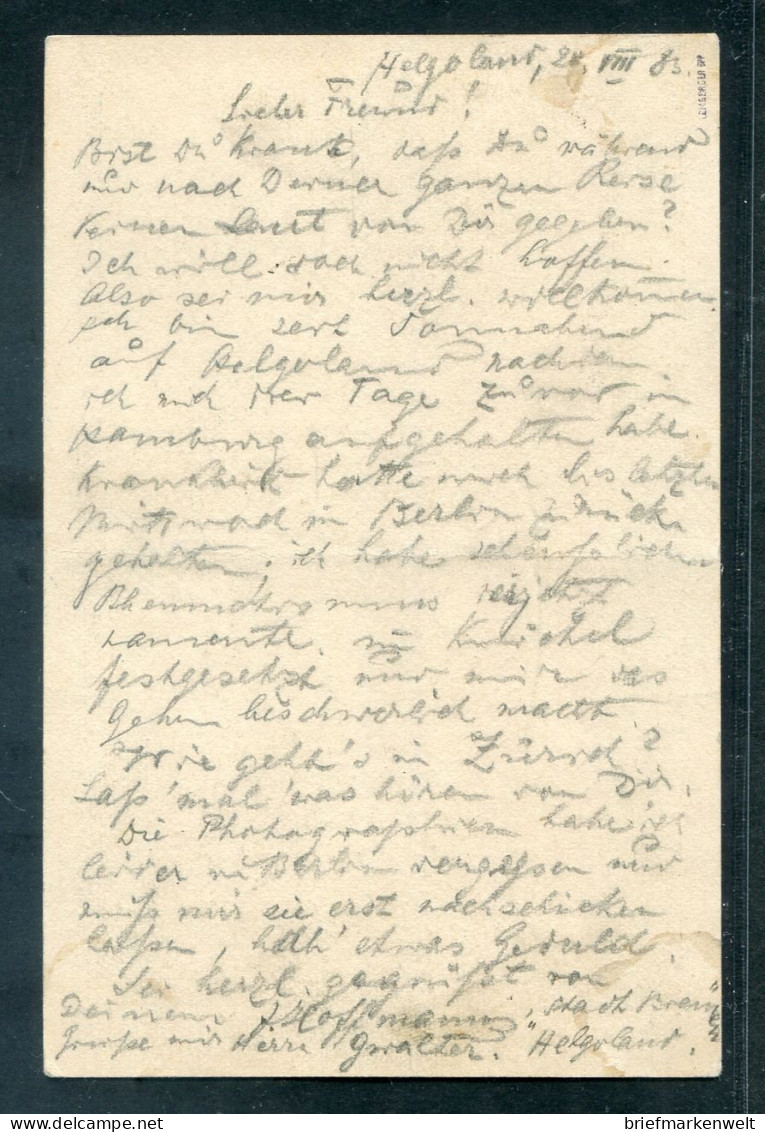 Helgoland, 28. VIII 83.
Lieber Freund!
Bist Du krank, daß Du während
und nach Deiner ganzen Reise
keinen Laut von Dir gegeben?
Ich will doch nicht hoffen.
Also sei mir herzl. willkommen
ich bin seit Sonnabend
auf Helgoland nachdem
ich mich drei Tage zuvor in
Hamburg aufgehalten habe.
Krankheit hatte mich bis letzten
Mittwoch in Berlin zurück
gehalten, ich habe scheußlichen
Rheumatismus der jetzt
im Knöchel
festgesetzt und mir das
Gehen beschwerlich macht
Wie geht's in Zürich?
Laß 'mal 'was hören von Dir.
Die Photographien habe ich
leider in Berlin vergessen und
muß mir sie erst nachschicken
lassen, hab' etwas Geduld.
Sei herzl. gegrüßt von
Deinem Hoffmann, "Stadt Bremen"
Grüße mir Herrn Gwalter. Helgoland.
briefmarkenwelt